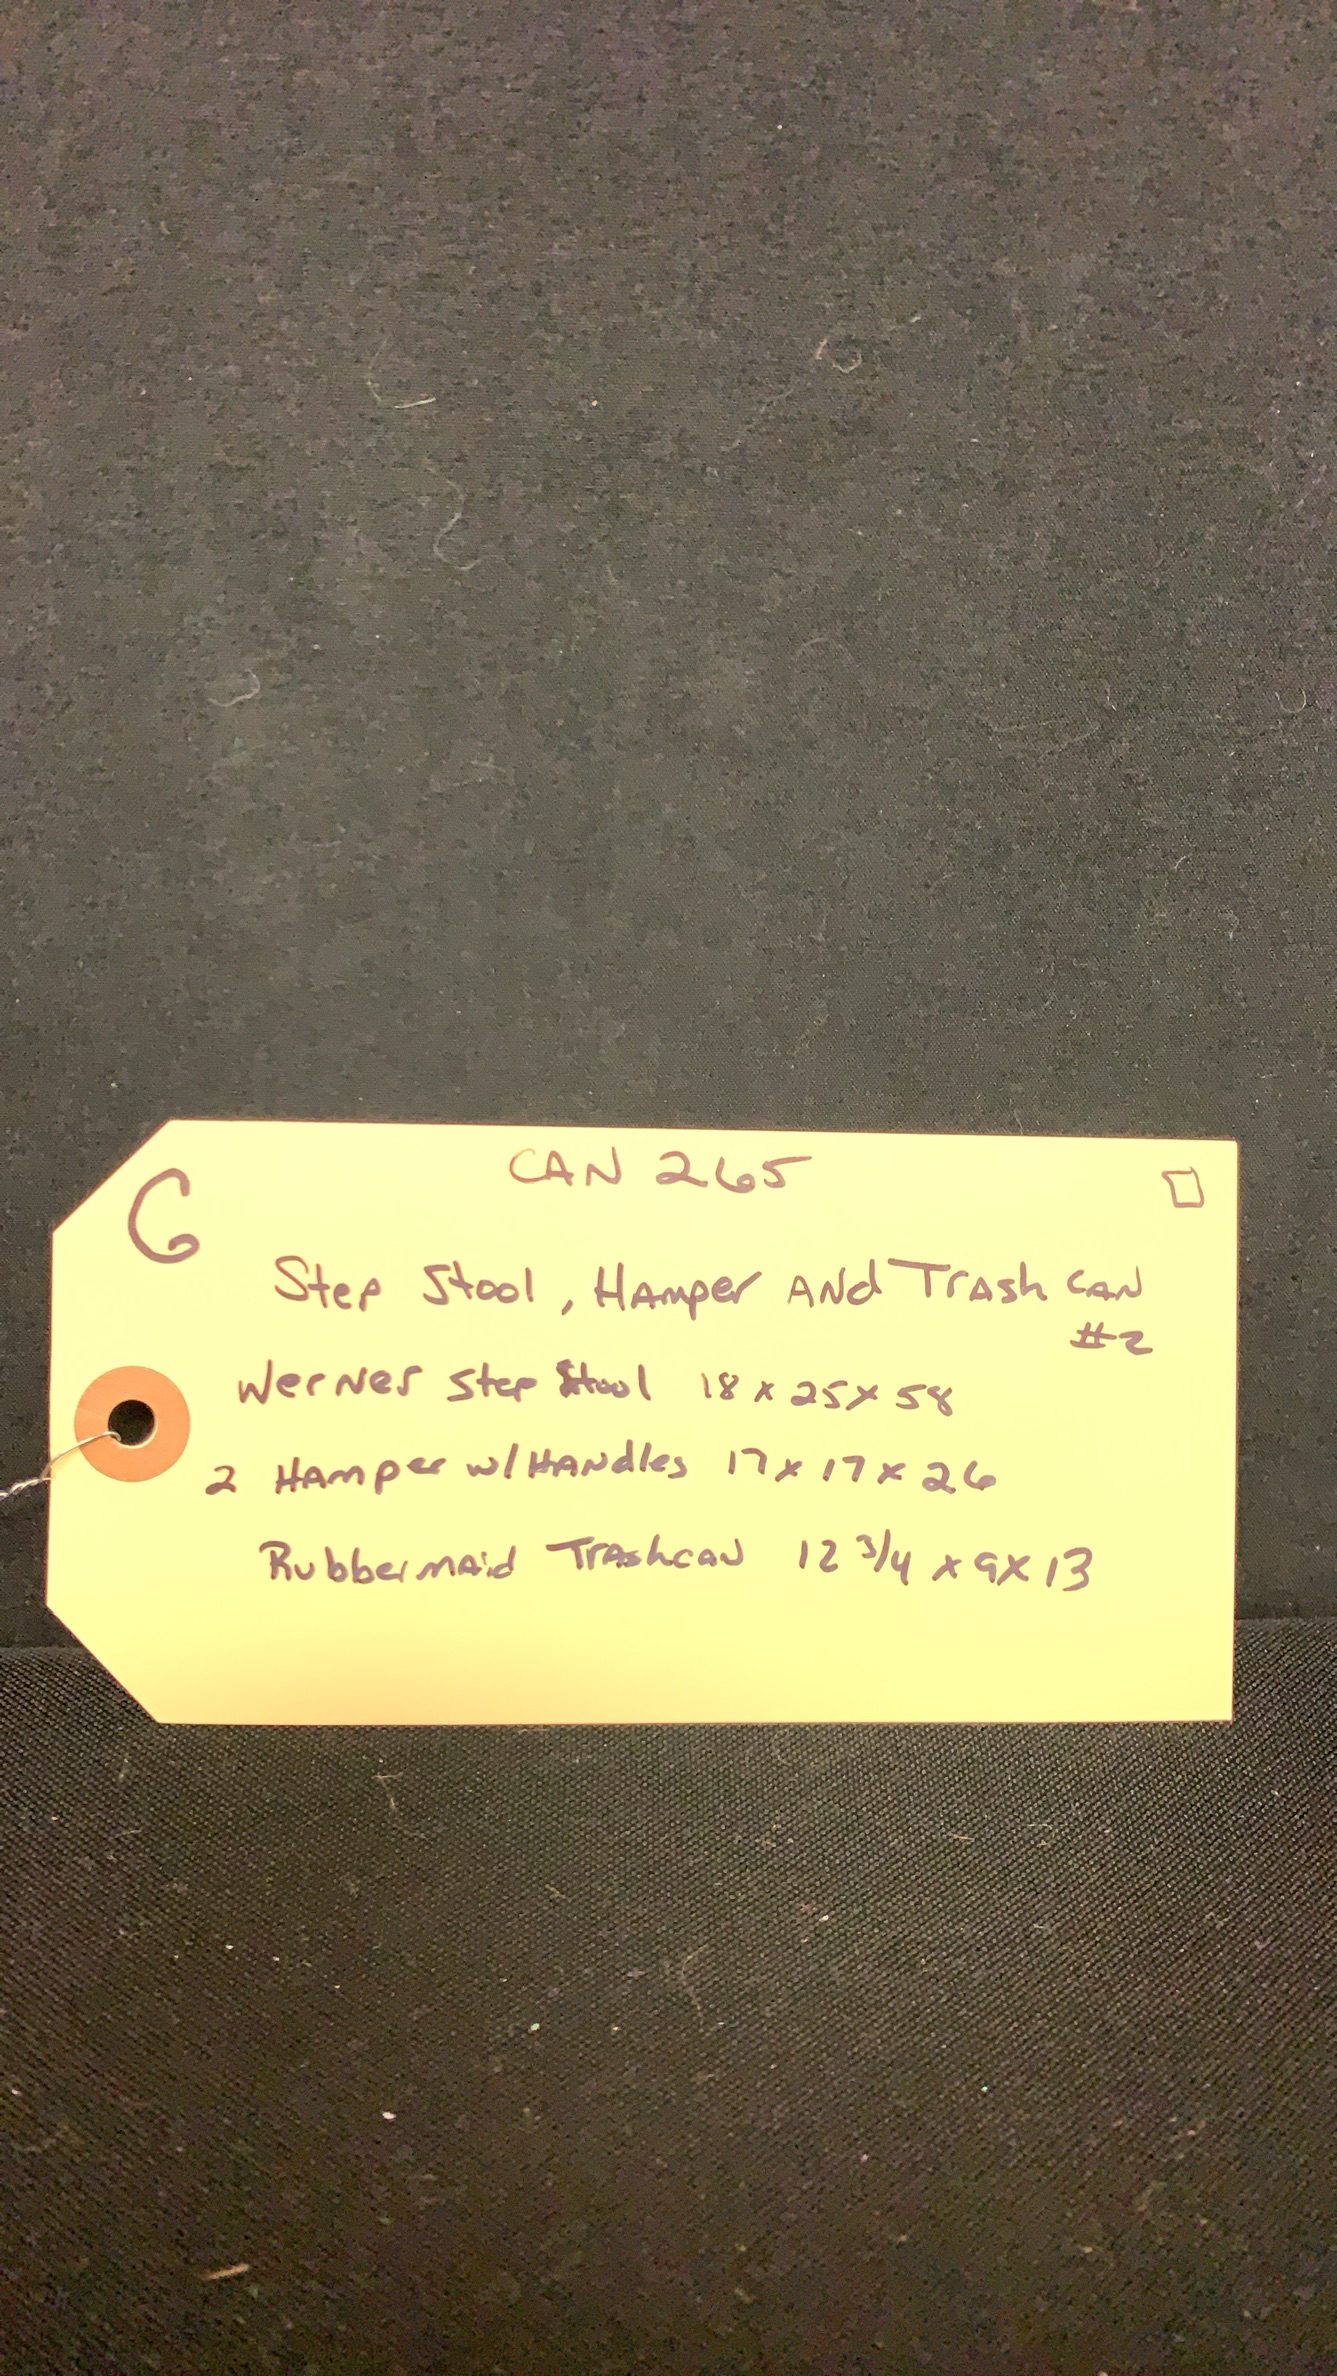 CAN 265
G
Step Stool, Hamper And Trash can
#2
Werner Step Stool 18 x 25 x 58
2 Hamper w/ Handles 17 x 17 x 26
Rubbermaid Trashcan 12 3/4 x 9 x 13